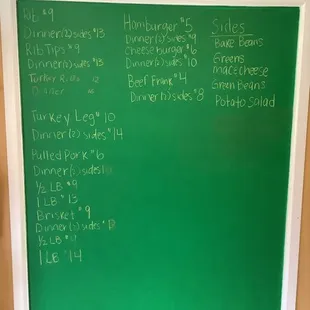 $9
Dinner (2) sides $13
Rib Tips $9
Dinner (2) sides $13
Turkey Ribs 12
Dinner
Turkey Leg $10
Dinner (2) sides $14
Pulled Pork $6
Dinner (2) sides
1/2 LB $9
1 LB $13
Brisket $9
Dinner (2) sides
1/2 LB
1 LB $14
Hamburger $5
Dinner (2) sides $9
Cheeseburger $6
Dinner (2) sides $10
Beef Frank $4
Dinner (2) sides $8
Sides
Bake Beans
Greens
Mac & Cheese
Green Beans
Potato Salad